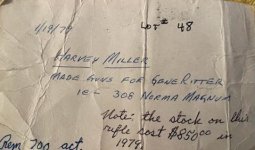 1/19/79 LOT# 48
HARVEY MILLER
MADE GUNS FOR GENE RITTER
IE - 308 NORMA MAGNUM
Note: the stock on this
rifle cost $850.00 in
1979.
Rem 700 act.